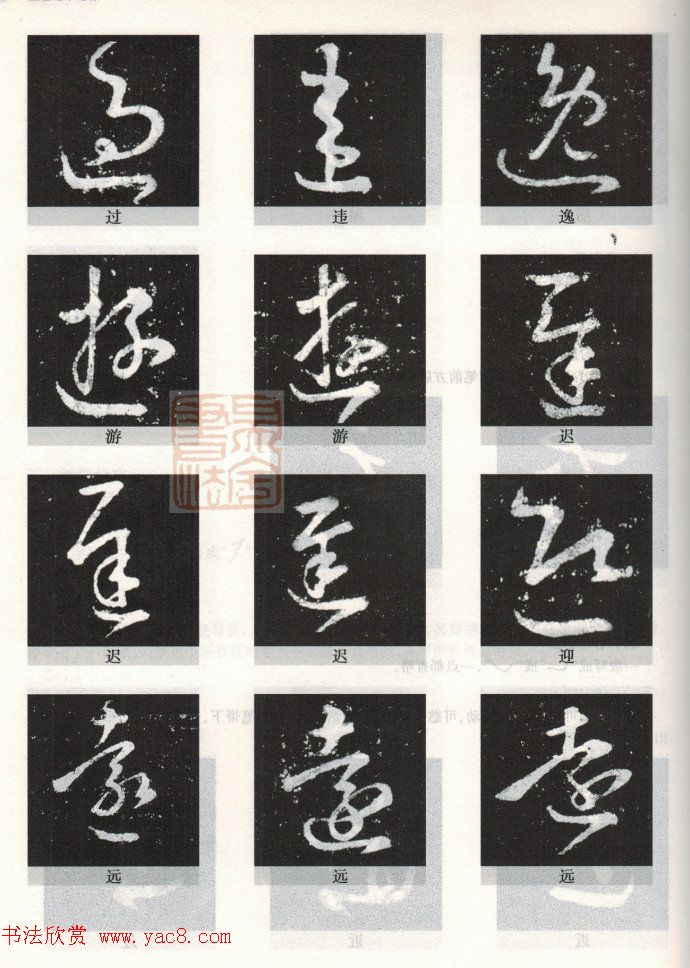 过 违 逸
游 游 迟
迟 迟 迎
远 远 远
书法欣赏 www.yac8.com